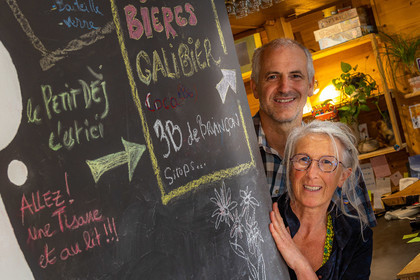 bouteille
verre
BIÈRES
GALIBIER
Cocalle
3B de BRIANÇON!
Sirops...
le Petit DÉJ
c'est ici
ALLEZ!
une Tisane
et au lit!!!